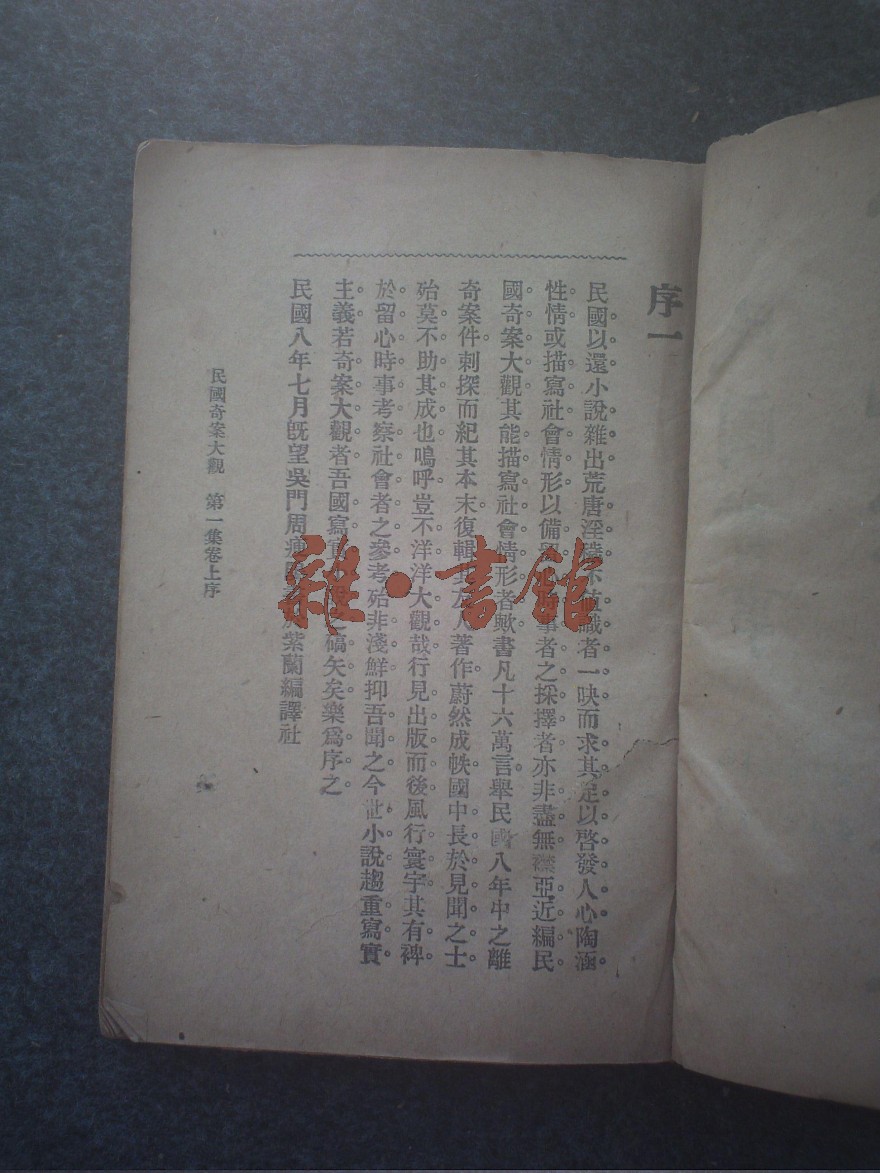 序一
民國以還小說雜出荒唐淫
識者一映而求其足以啓發人心陶涵
性情或描寫社會情形以備
事者之採擇者亦非盡無 亞近編民
國奇案大觀其能描寫社會情形者歟書凡十六萬言舉民國八年中之離
奇案件刺探而紀其本末復輯
著作蔚然成帙國中長於見聞之士
殆莫不助其成也嗚呼豈不洋洋大觀哉行見出版而後風行寰宇其有裨
於留心時事考察社會者之參考殆非淺鮮抑吾聞之今世小說趨重寫實
主義若奇案大觀者吾國寫
之碻矢矣樂爲序之
民國八年七月旣望吳門周
紫蘭編譯社
民國奇案大觀 第一集卷上序
雜·書館